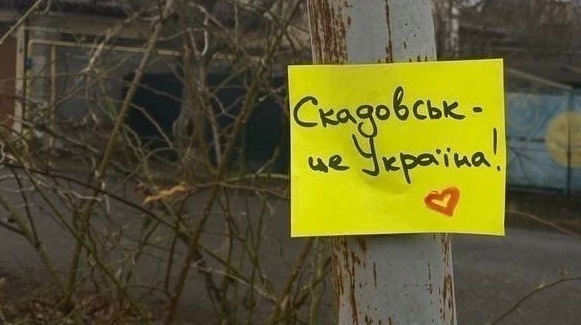 Скадовськ -
це Україна!